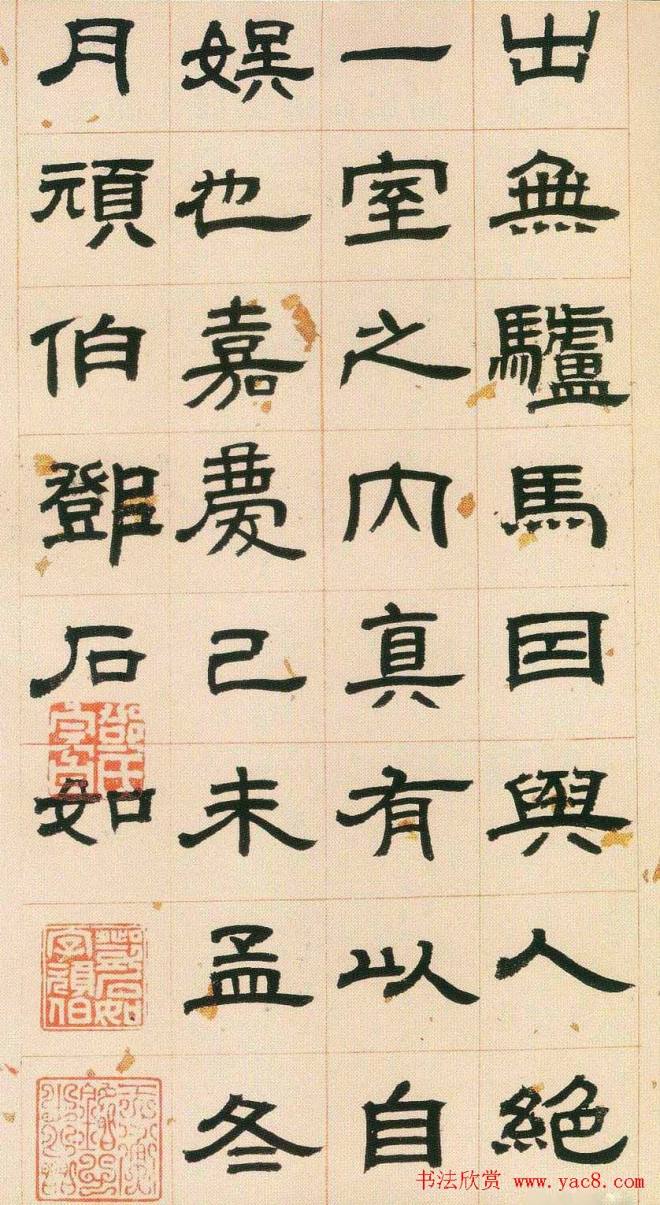 出無驢馬囙與人絕
一室之內真有以自
娛也嘉慶己未孟冬
月頑伯鄧石如
鄧石如字頑伯
书法欣赏 www.yac8.com